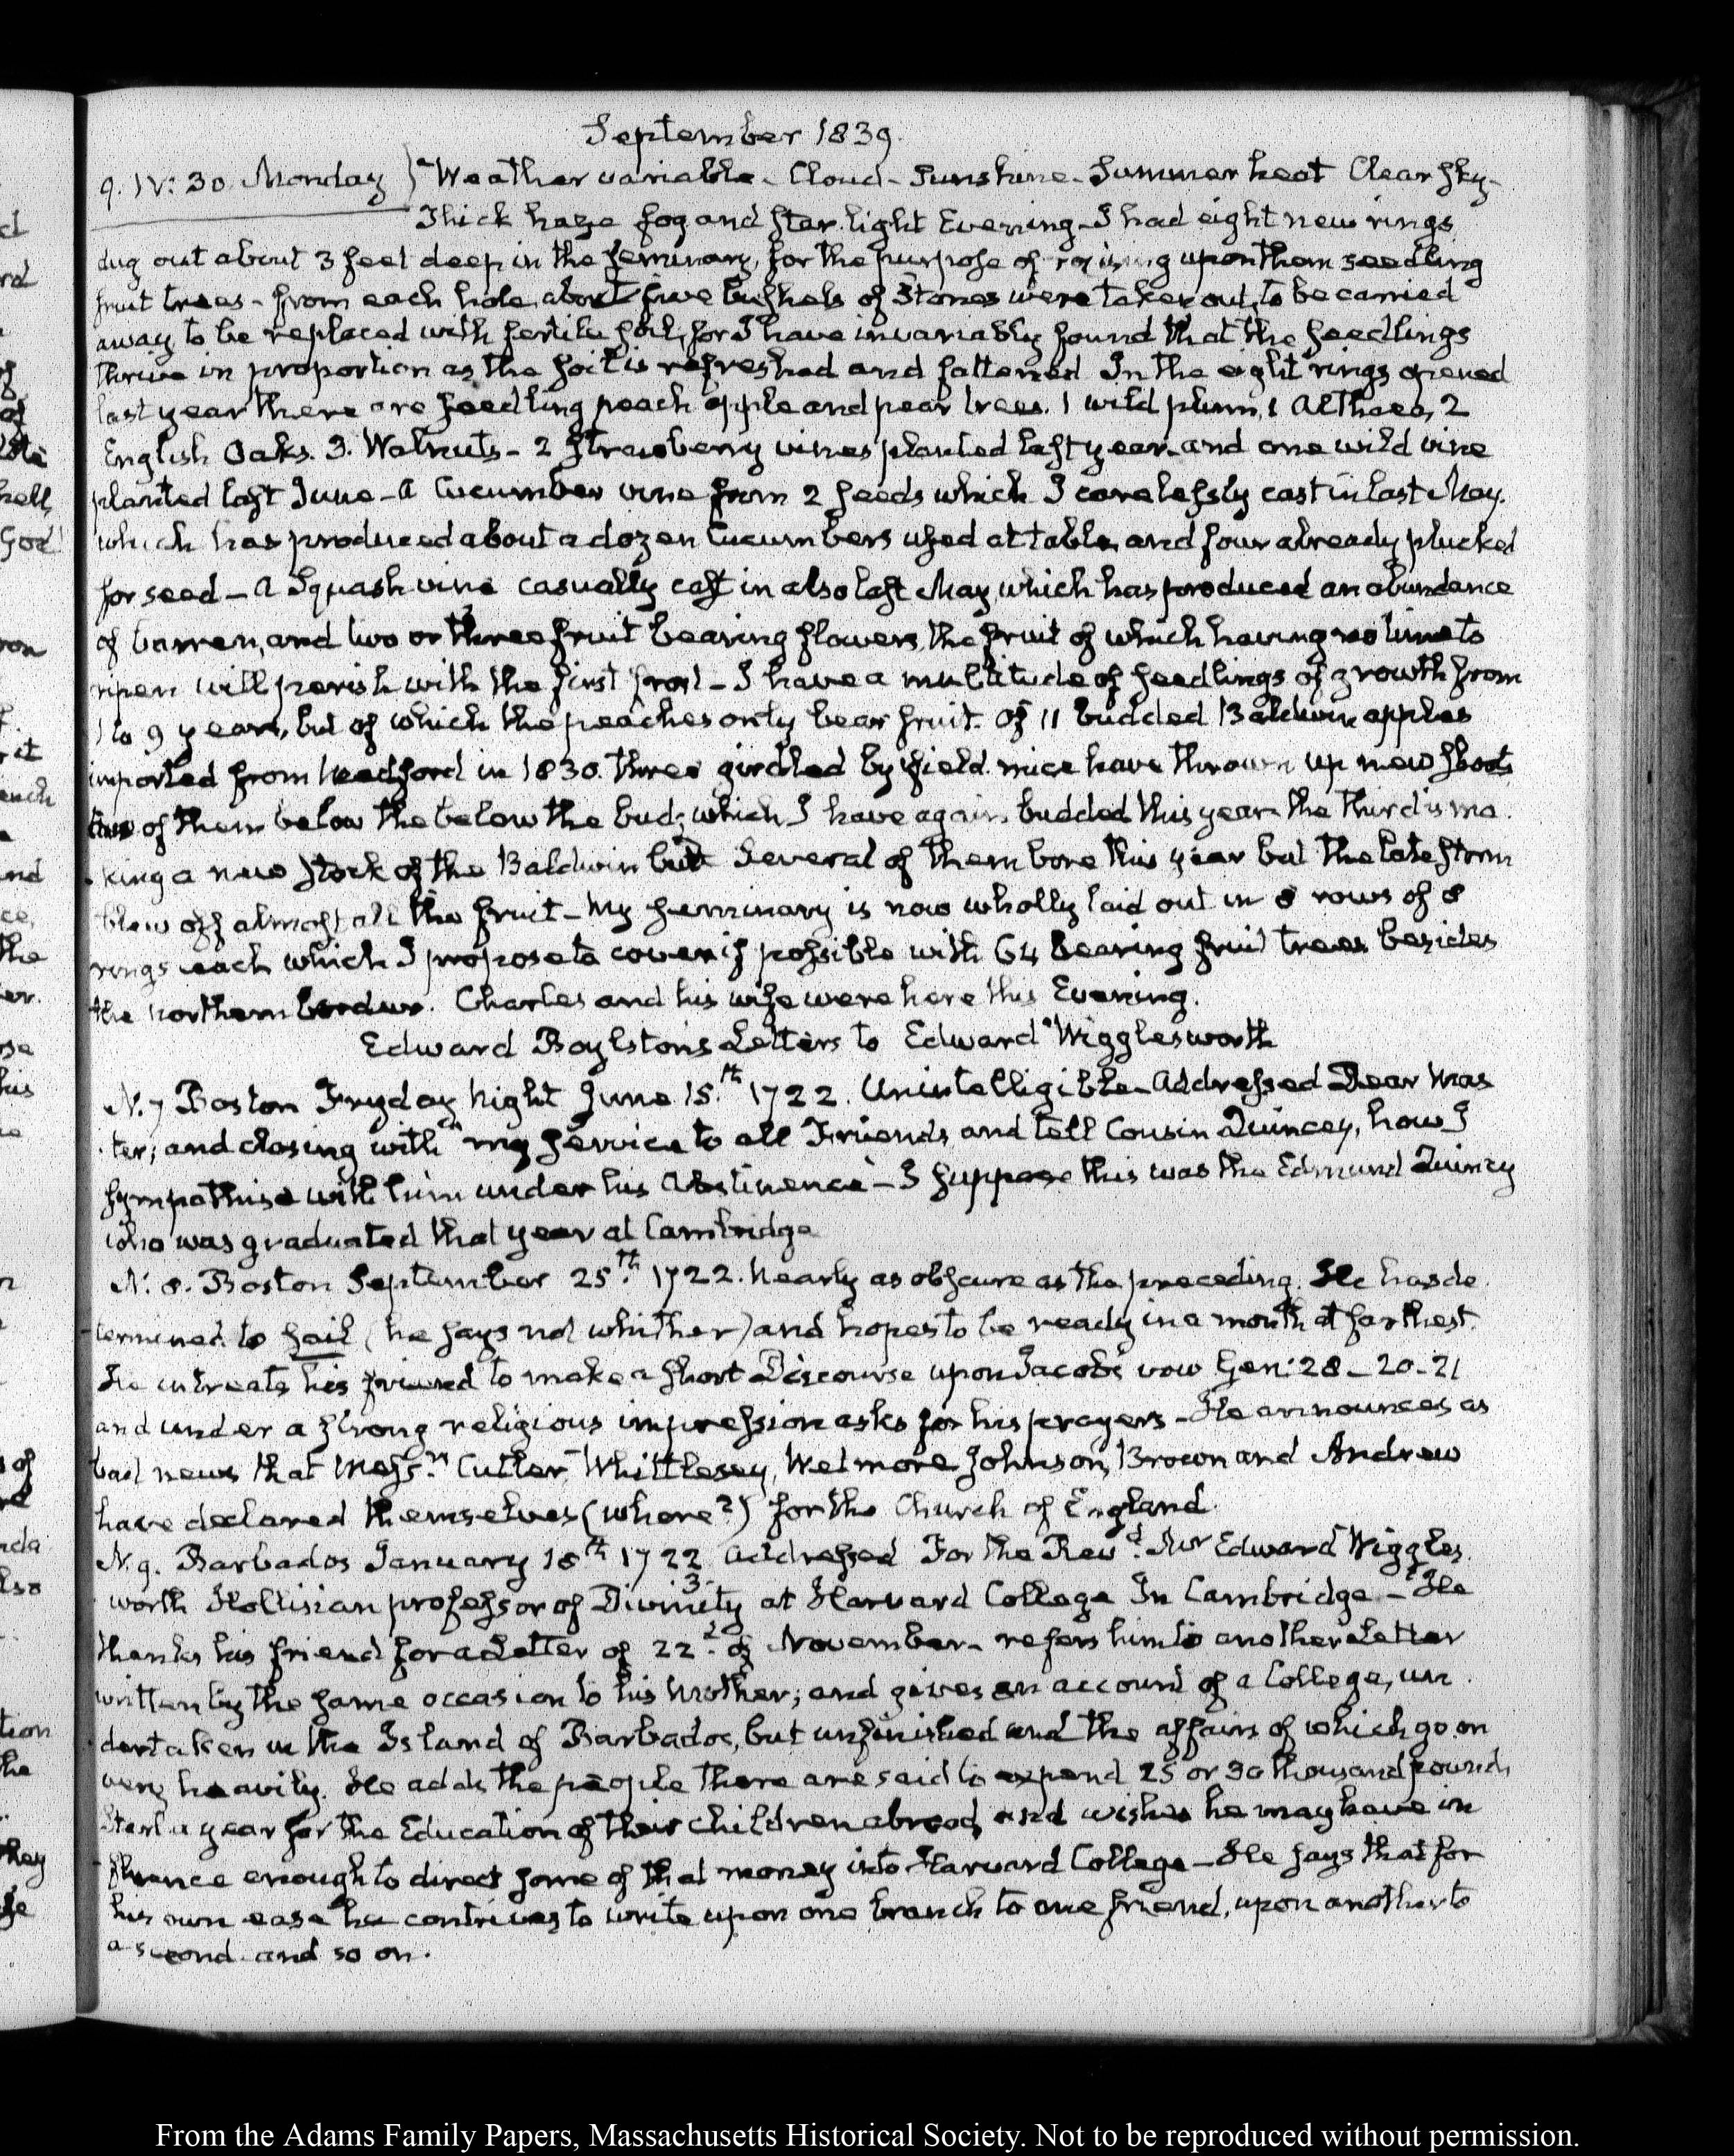 September 1839.
9. IV: 30. Monday } Weather variable - Cloud - Sunshine - Summer heat Clear sky -
Thick haze fog and star-light Evening - I had eight new rings
dug out about 3 feet deep in the seminary, for the purpose of raising upon them seedling
fruit trees - from each hole about five bushels of Stones were taken out, to be carried
away to be replaced with fertile soil, for I have invariably found that the seedlings
thrive in proportion as the soil is refreshed and fattened. In the eight rings opened
last year there are seedling peach apple and pear trees. 1 wild plum, 1 Althaea, 2
English Oaks. 3. Walnuts - 2 strawberry vines planted last year and one wild vine
planted last June - A Cucumber vine from 2 seeds which I carelessly cast in last May.
which has produced about a dozen Cucumbers used at table, and four already plucked
for seed - A Squash vine casually cast in also last May, which has produced an abundance
of barren, and two or three fruit bearing flowers, the fruit of which having no time to
ripen will perish with the first frost - I have a multitude of seedlings of growth from
1 to 9 years, but of which the peaches only bear fruit. Of 11 budded Baldwin apples
imported from in 1830. three girdled by field mice have thrown up new shoots
two of them below the below the bud; which I have again budded this year the third is ma
king a new stock of the Baldwin bud Several of them bore this year but the late storm
blew off almost all the fruit - My seminary is now wholly laid out in 8 rows of 8
rings each which I propose to cover if possible with 64 bearing fruit trees besides
the northern border. Charles and his wife were here this Evening.
Edward Boylston's Letters to Edward Wigglesworth
N. 7 Boston Fryday Night June 15.th 1722. Unintelligible - Addressed Dear Mas
ter; and closing with "my service to all Friends and tell Cousin Quincey, how I
sympathise with him under his Abstinence" - I suppose this was the Edmund Quincy
who was graduated that year at Cambridge
N. 8. Boston September 25.th 1722. Nearly as obscure as the preceding. He has de
termined to sail (he says not whither) and hopes to be ready in a month at farthest.
He intreats his friend to make a short Discourse upon Jacob's vow Gen: 28 - 20-21
and under a strong religious impression asks for his prayers - He announces as
bad news that Mess.rs Cutler, Whittlesey, Wetmore Johnson, Brown and Andrew
have declared themselves (where?) for the Church of England.
N. 9. Barbados January 18th 1722 Addressed For the Rev.d Mr Edward Wiggles
3.
worth Hollisian professor of Divinity at Harvard College In Cambridge - He
thanks his friend for a Letter of 22.d of November - refers him to another Letter
written by the same occasion to his Mother; and gives an account of a College, un
dertaken in the Island of Barbados, but unfinished and the affairs of which go on
very heavily. He adds the people there are said to expend 25 or 30 thousand pounds
Sterl a year for the Education of their children abroad, and wishes he may have in
fluence enough to direct some of that money into Harvard College - He says that for
his own ease he contrives to write upon one branch to one friend, upon another to
a second and so on.
From the Adams Family Papers, Massachusetts Historical Society. Not to be reproduced without permission.